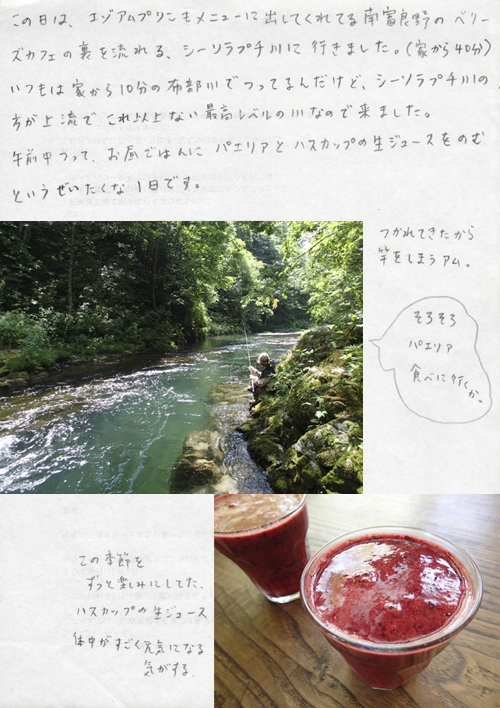 この日は、エゾアムプリンもメニューに出してくれてる南富良野のベリー
ズカフェの裏を流れる、シーソラプチ川に行きました。(家から40分)
いつもは家から10分の布部川でつってるんだけど、シーソラプチ川の
方が上流でこれ以上ない最高レベルの川なので来ました。
午前中つって、お昼ごはんにパエリアとハスカップの生ジュースをのむ
というぜいたくな1日です。
つかれてきたから
竿をしまうアム。
そろそろ
パエリア
食べに行くか。
この季節を
ずっと楽しみにしてた、
ハスカップの生ジュース
体中がすごく元気になる
気がする。